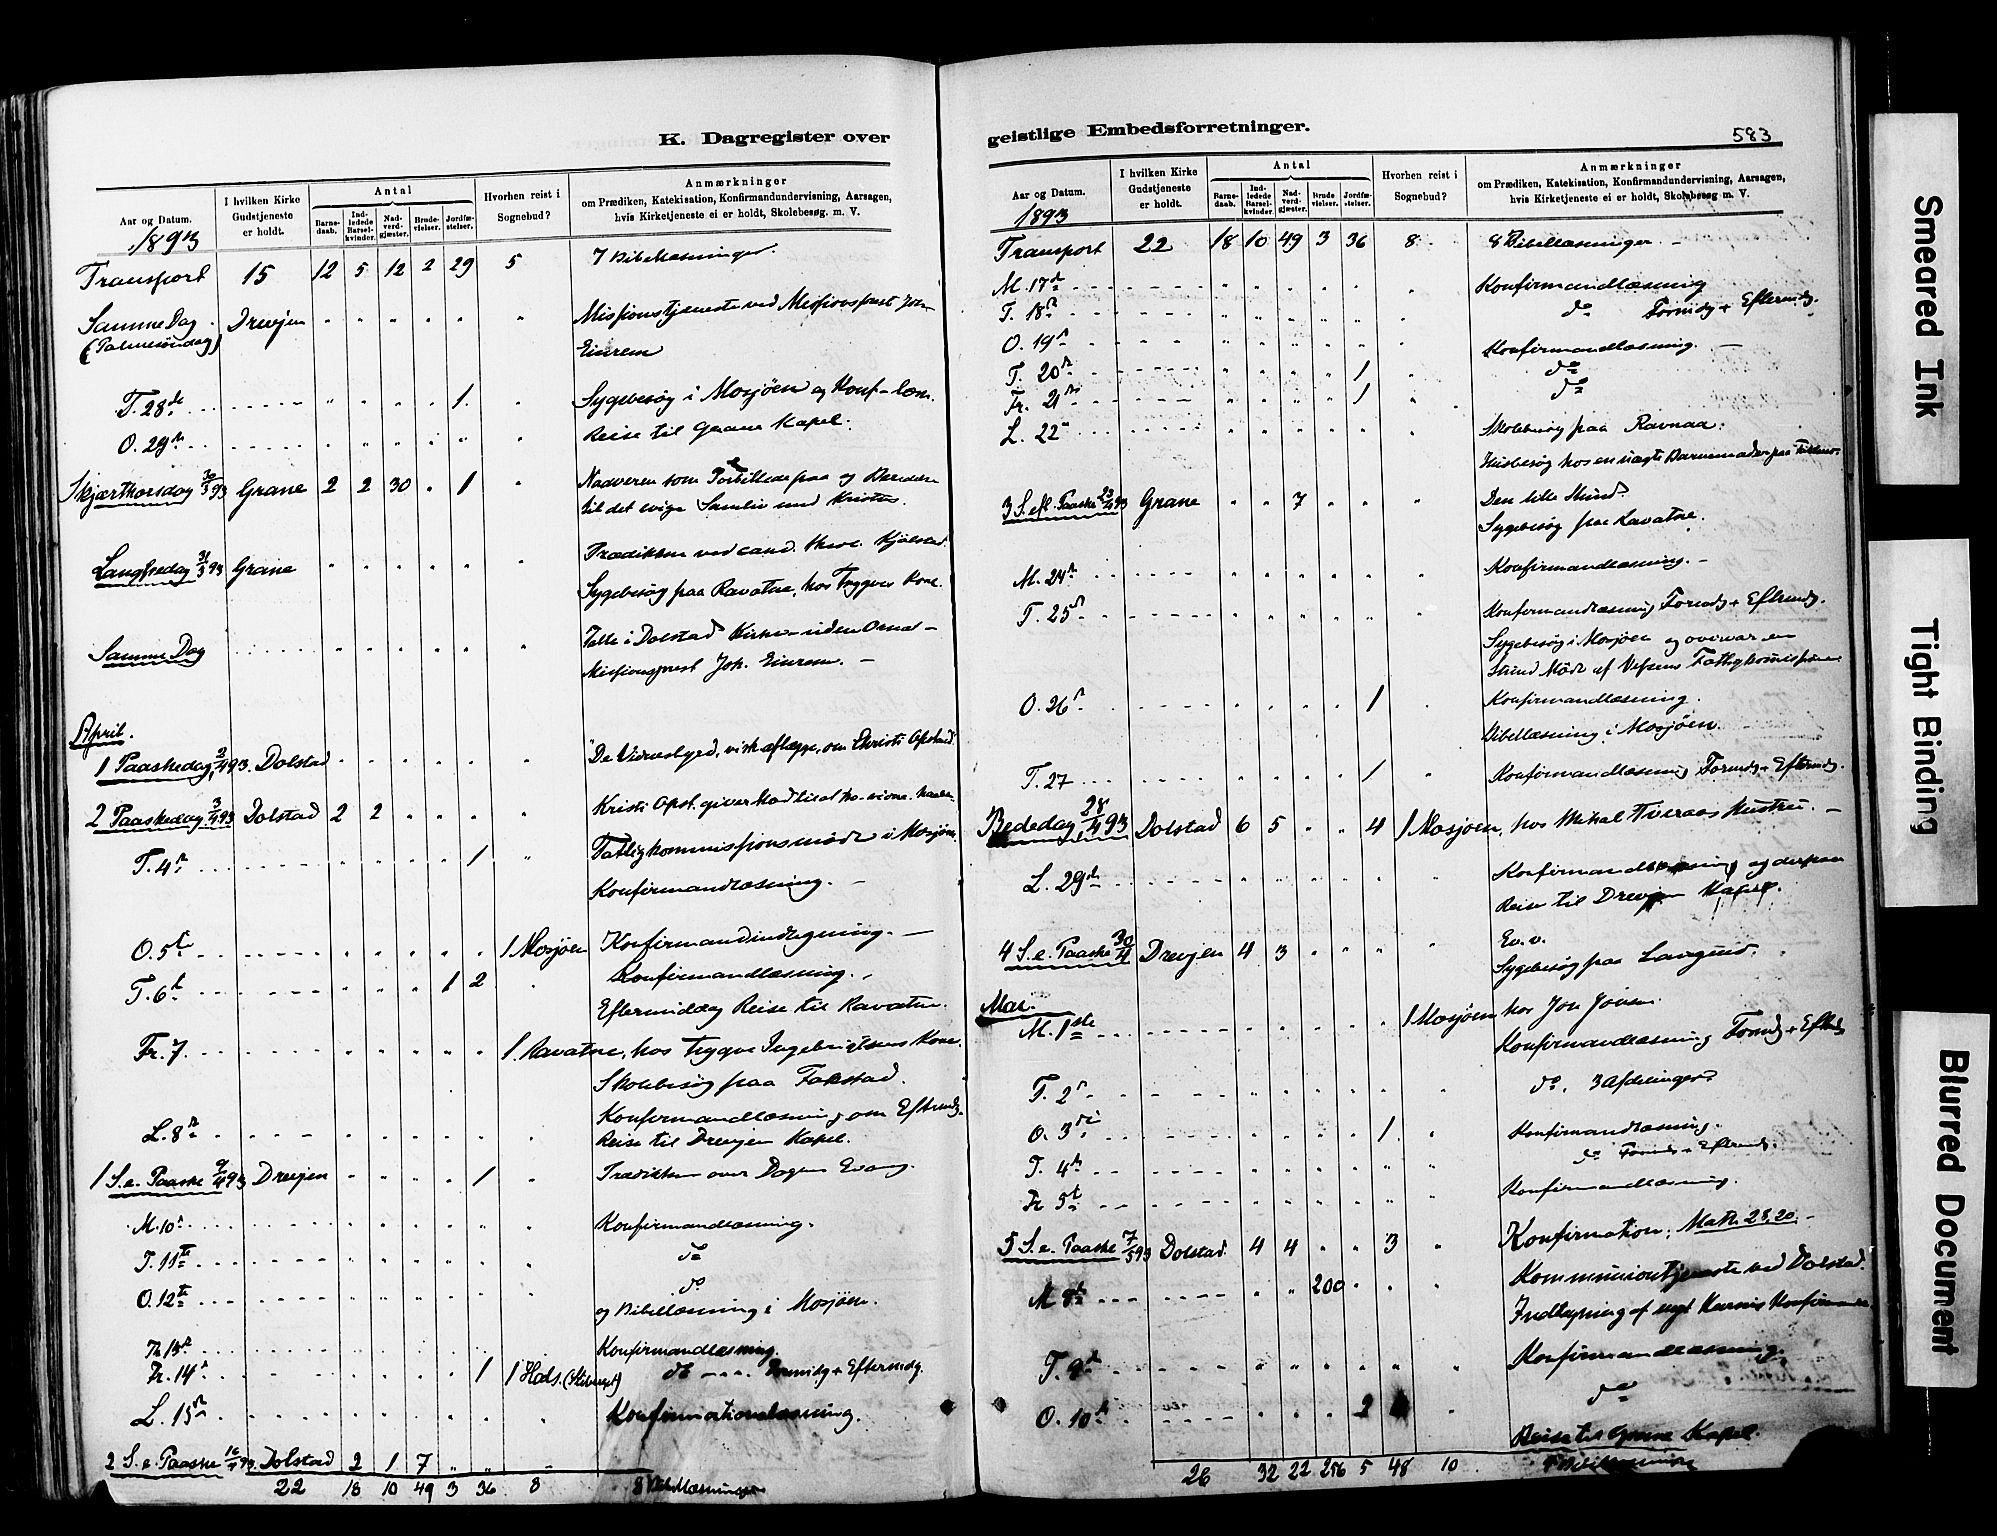 K. Dagregister over
Aar og Datum.
1893
I hvilken Kirke Gudstjeneste er holdt.
Antal
Barnedaab.
Indledede Barselkvinder.
Nadverdgjæster.
Brudevielser.
Jordfæstelser.
Hvorhen reist i Sognebud?
Anmærkninger
om Prædiken, Katekisation, Konfirmandundervisning, Aarsagen,
hvis Kirketjeneste ei er holdt, Skolebesøg. m. V.
Transport 15 12 5 12 2 29 5 7 Bibellæsninger.
Samme Dag Drevjen " " " " " " Missionstjeneste ved Missionsprest Joh.
(Palmesøndag) Einrem
T. 28de " " " " 1. " Sygebesøg i Mosjøen og Konf-læsn.
O. 29de " " " " " " Reise til Grane Kapel.
Skjærthorsdag 30/3 93 Grane 2 2 30 " 1 " Nadveren som Forbillede paa og
til det evige Samliv med Kristus.
Langfredag 31/3 93 Grane " " " " " " Prædiken ved cand. theol. Kjølstad.
Sygebesøg paa Ravatne, hos Trygves Kone.
Samme Dag " " " " " " Talte i Dolstad Kirke - uden Ornat -
Missionsprest Joh. Einrem. -
April.
1 Paaskedag 2/4 93. Dolstad " " " " " " De Vidnesbyrd, vi skal lægge, om Christi Opstand.
2 Paaskedag 3/4 93 Dolstad 2 2 " " " " Kristi Opst. giver
T. 4de " " " " 1 " Fattigkommissionsmøde i Mosjøen
Konfirmandlæsning. -
O. 5te " " " " " 1 Mosjøen Konfirmandindtegning. -
T. 6te " " " 1 2 " Konfirmandlæsning. -
Eftermiddag Reise til Ravatne.
Fr. 7. " " " " " 1 Ravatne, hos Trygve Ingebrigtsens Kone.
Skolebesøg paa Fokstad.
Konfirmandlæsning om Eftermdg.
L. 8de " " " " " " Reise til Drevjen Kapel.
1 S. e. Paaske 9/4 93 Drevjen " " " " 1 " Prædiken over Dagens Evang.
M. 10de " " " " " " Konfirmandlæsning.
T. 11te " " " " " " do
O. 12te " " " " " " do
og Bibellæsning i Mosjøen.
Th 13de " " " " " " Konfirmandlæsning.
Fr. 14de " " " " 1 1 Hals. do - Formdg + Eftermdg.
L. 15de " " " " " " Konfirmationslæsning.
2 S. e. Paaske 16/4 93. Dolstad 2 1 7 " " "
22 18 10 49 3 36 8 8 Bibellæsninger
geistlige Embedsforretninger.
583
Aar og Datum.
1893
I hvilken Kirke Gudstjeneste er holdt.
Antal
Barnedaab.
Indledede Barselkvinder.
Nadverdgjæster.
Brudevielser.
Jordfæstelser.
Hvorhen reist i Sognebud?
Anmærkninger
om Prædiken, Katekisation, Konfirmandundervisning, Aarsagen,
hvis Kirketjeneste ei er holdt, Skolebesøg m. V.
Transport 22 18 10 49 3 36 8 8 Bibellæsninger -
M. 17de " " " " " " Konfirmandlæsning
T. 18de " " " " " " do Formdg + Eftermdg.
O. 19de " " " " " " Konfirmandlæsning. -
T. 20de " " " " 1 " do
Fr. 21de " " " " 1 " do
L. 22de " " " " " " Skolebesøg paa Ravnaa.
Husbesøg hos en uægte Barnemoder paa
3 S. eft. Paaske 23/4 93 Grane " " 7 " " " Den lille Stund.
Sygebesøg paa Ravatne.
M. 24de " " " " " " Konfirmandlæsning. -
T. 25de " " " " " " Konfirmandlæsning Formdg + Eftermdg.
Sygebesøg i Mosjøen og overvar en
Stund Møde af Vefsens Fattigkommission
O. 26de " " " " 1 " Konfirmandlæsning.
Bibellæsning i Mosjøen.
T. 27 " " " " 1 " Konfirmandlæsning Formdg + Eftermdg.
Bededag 28/4 93 Dolstad 6 5 " " 4 1 Mosjøen, hos Mikal Hveraas Hustru. -
L. 29de " " " " " " Konfirmandlæsning og derpaa
Reise til Drevjen Kapel.
4 S. e. Paaske 30/4 Drevjen 4 3 " " " " Ev. v.
Sygebesøg paa Langeid.
Mai.
M. 1ste " " " " " 1 Mosjøen hos Jon Jonsen.
Konfirmandlæsning Formdg + Eftmdg
T. 2de " " " " " " do. 3 Afdelinger
O. 3die " " " " 1 " Konfirmandlæsning.
T. 4de " " " " " " do Formdg + Eftermdg.
Fr 5te " " " " " " Konfirmandlæsning.
5 S. e. Paaske 7/5 93 Dolstad. 4 4 " " 3 " Konfirmation; Math. 28,20 -
M 8de " " 200 " " " Kommuniontjeneste ved Dolstad.
Indtegning af nyt Kursus Konfirmander
T. 9de " " " " " " Konfirmandlæsning.
O. 10de " " " " 2 " do
Reise til Grane Kapel.
26 32 22 256 5 48 10 Bibellæsninger
Smeared Ink
Tight Binding
Blurred Document